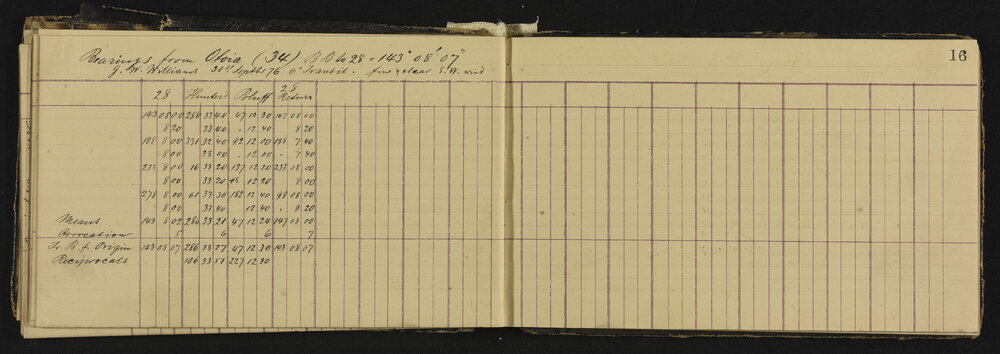 16
Bearings from Otoia (34) B.D to 28 = 143° 08' 07"
J. W. Williams 30th Septbr 76 6" Transit. fine & clear S.W. wind
28 Hunter's Bluff 28 Return
143 08 00 286 33 40 47 12 30 143 08 00
8 20 33 40 . 12 40 8 20
188 8 00 331 32 40 92 12 00 188 7 40
8 00 33 00 . 12 00 . 7 40
233 8 00 16 33 20 137 12 20 233 08 00
8 00 33 20 12 20 8 00
278 8 00 61 33 30 182 12 40 98 08 00
8 00 33 40 . 12 40 . 8 20
Means 143 8 02 286 33 21 47 12 24 143 08 00
Correction 5 6 6 7
Tr. B. f. Origin 143 08 07 286 33 27 47 12 30 143 08 07
Reciprocals 106 33 51 227 12 30